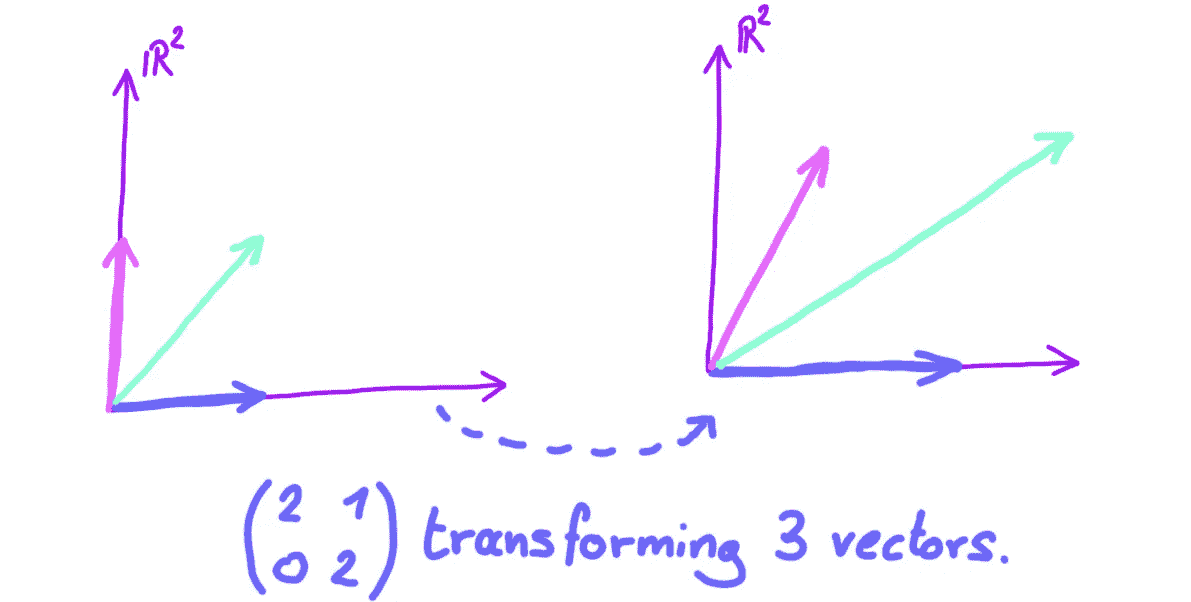 ℝ²
ℝ²
(2 1
0 2) transforming 3 vectors.